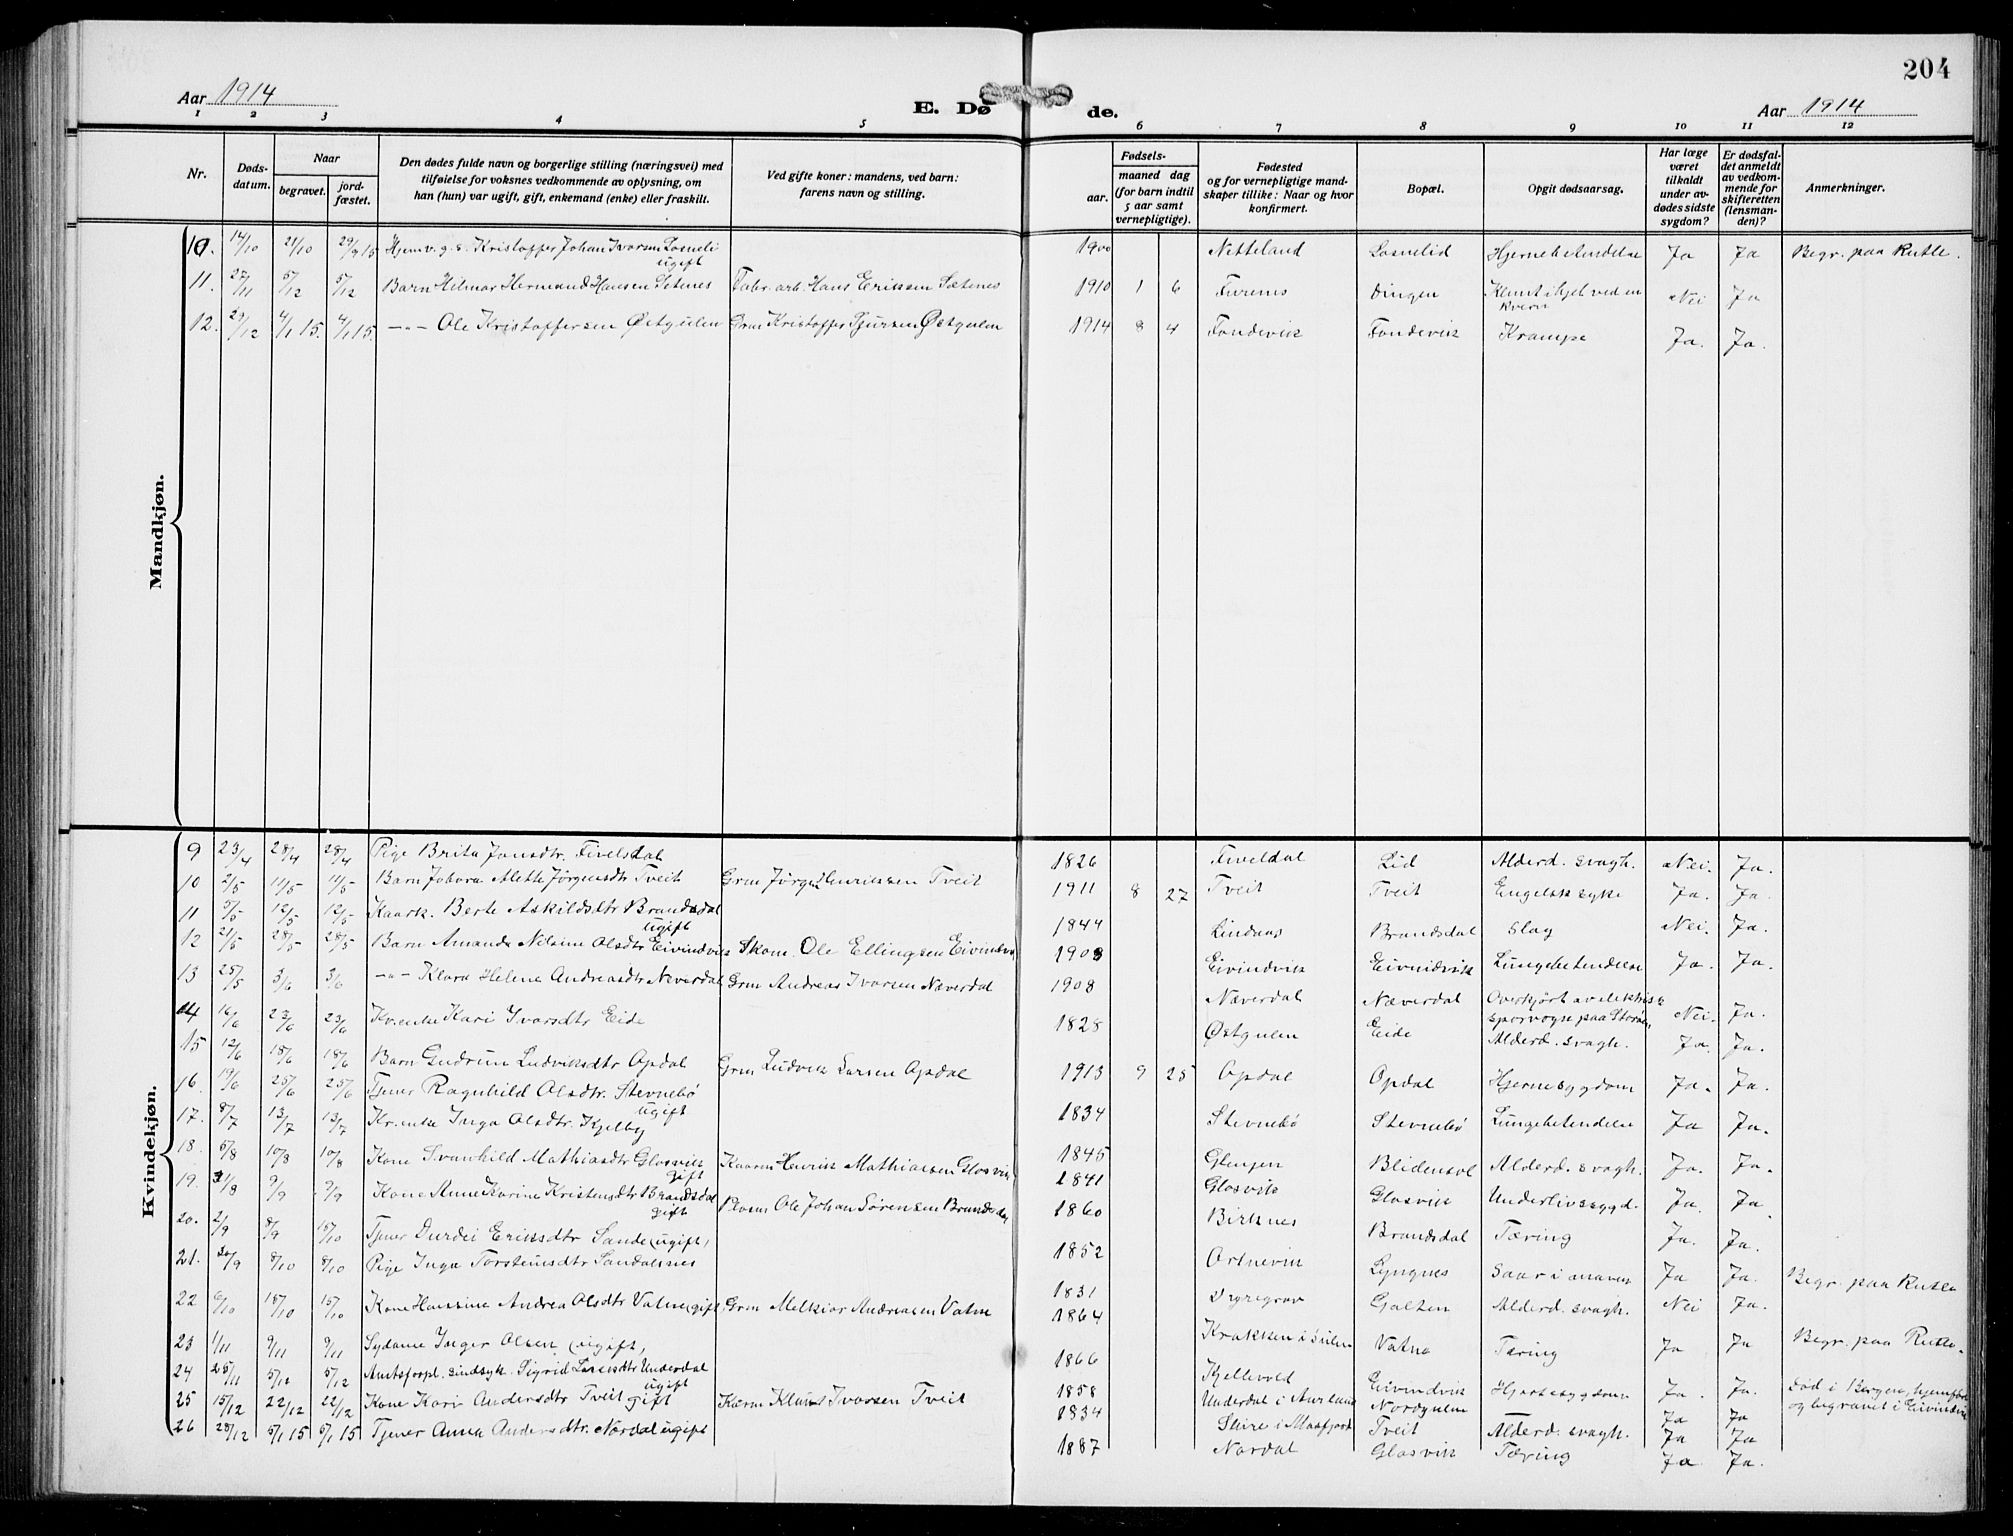 204
Aar 1914
E. Døde.
Aar 1914
1 2 3 4 5 6 7 8 9 10 11 12
Nr.
Døds-
datum.
Naar
begravet.
jord-
fæstet.
Den dødes fulde navn og borgerlige stilling (næringsvei) med
tilføielse for voksnes vedkommende av oplysning, om
han (hun) var ugift, gift, enkemand (enke) eller fraskilt.
Ved gifte koner: mandens, ved barn:
farens navn og stilling.
Fødsels-
aar.
maaned dag
(for barn indtil
5 aar samt
vernepligtige).
Fødested
og for vernepligtige mand-
skaper tillike: Naar og hvor
konfirmert.
Bopæl.
Opgit dødsaarsag.
Har læge
været
tilkaldt
under av-
dødes sidste
sygdom?
Er dødsfal-
det anmeldt
av vedkom-
mende for
skifteretten
(lensman-
den)?
Anmerkninger.
Mandkjøn.
10. 14/10 21/10 29/9 15 Hjemv. g. s. Kristoffer Johan Ivarsen Losneli ugift 1900 Netteland Losnelid Hjernebetændelse Ja Ja Begr. paa Rutle.
11. 27/11 5/12 5/12 Barn Hilmar Hermand Hansen Setenes Fabr. arb. Hans Eriksen Sætenes 1910 1 6 Furenes Dingen Klemt ihjel ved en kvern Nei Ja
12. 29/12 4/1 15. 4/1 15. -"- Ole Kristoffersen Østgulen Grm Kristoffer Sjursen Østgulen 1914 8 4 Fondevik Fondevik Krampe Ja. Ja.
Kvindekjøn.
9 23/4 28/4 28/4 Pige Brita Jonsdtr. Fivelsdal 1826 Fiveldal Lid Alderd. svagh. Nei. Ja.
10 2/5 11/5 11/5 Barn Jobora Alette Jørgensdtr Tveit Grm Jørgen Henriksen Tveit 1911 8 27 Tveit Tveit Engelsk syke Ja. Ja.
11 5/5 12/5 12/5 Kaark. Berte Askildsdtr Brandsdal ugift 1844 Lindaas Brandsdal Slag Nei. Ja.
12 21/5 28/5 28/5 Barn Amanda Nelsine Olsdtr Eivindvik Skom. Ole Ellingsen Eivindvik 1908 Eivindvik Eivindvik Lungebetændelse Ja. Ja.
13 25/5 3/6 3/6 -"- Klara Helene Andreasdtr Næverdal Grm Andreas Ivarsen Næverdal 1908 Næverdal Næverdal Overkjørt av elektrisk sporvogn paa Nei. Ja.
14 16/6 23/6 23/6 Kv. enke Kari Ivarsdtr Eide 1828 Østgulen Eide Alderd. svagh. Ja. Ja.
15 12/6 18/6 18/6 Barn Gudrun Ludviksdtr Opdal Grm Ludvik Larsen Opdal 1913 9 25 Opdal Opdal Hjernesygdom Ja. Ja.
16. 19/6 25/6 25/6 Tjener Ragnhild Olsdtr. Stevnebø ugift 1834 Stevnebø Stevnebø Lungebetændelse Ja Ja.
17. 8/7 13/7 13/7 Kv. enke Inga Olsdtr. Kjelby 1845 Glenjen Alderd. svagh. Ja. Ja.
18. 5/8 10/8 10/8 Kone Svanhild Mathiasdtr Glosvik gift Kaarm Henrik Mathiassen Glosvik 1841 Glosvik Glosvik Underlivssygd. Ja. Ja
19. 31/8 9/9 9/9 Kone Anne Karine Kristensdtr Brandsdal gift Ole Johan Sørensen Brandsdal 1860 Birknes Brandsdal Tæring Ja. Ja.
20. 2/9 8/9 18/10 Tjener Durdei Eriksdtr Sande (ugift) 1852 Ortnevik Lyngnes Saar i maven Ja Ja. Begr. paa Rutle
21. 30/9 8/10 8/10 Pige Inga Torsteinsdtr Sandalsnes 1831 Dyregrov Galten Alderd. svagh. Nei Ja.
22 6/10 15/10 15/10 Kone Hansine Andrea Olsdtr Vatne (gift) Grm Melkior Andreasen Vatne 1864 Krakken i Sulen Vatne Tæring Ja Ja Begr. paa Rutle.
23 1/11 9/11 9/11 Sydame Inger Olsen (ugift) 1866 Kjellevold Eivindvik Hjertesygdom Ja. Ja. Død i Bergen, hjemført og begravet i Eivindvik
24 25/11 5/12 5/12 Amtsforpl. sindsyk. Sigrid Larsdtr Underdal ugift 1858 Underdal i Aurland Nordgulen Ja Ja
25 15/12 22/12 22/12 Kone Kari Andersdtr Tveit gift Kaarm Klaus Ivarsen Tveit 1834 Skire i Masfjord Tveit Alderd. svagh. Ja Ja
26 28/12 5/1 15 5/1 15 Tjener Anna Andersdtr. Nordal ugift 1887 Nordal Glosvik Tæring Ja Ja.